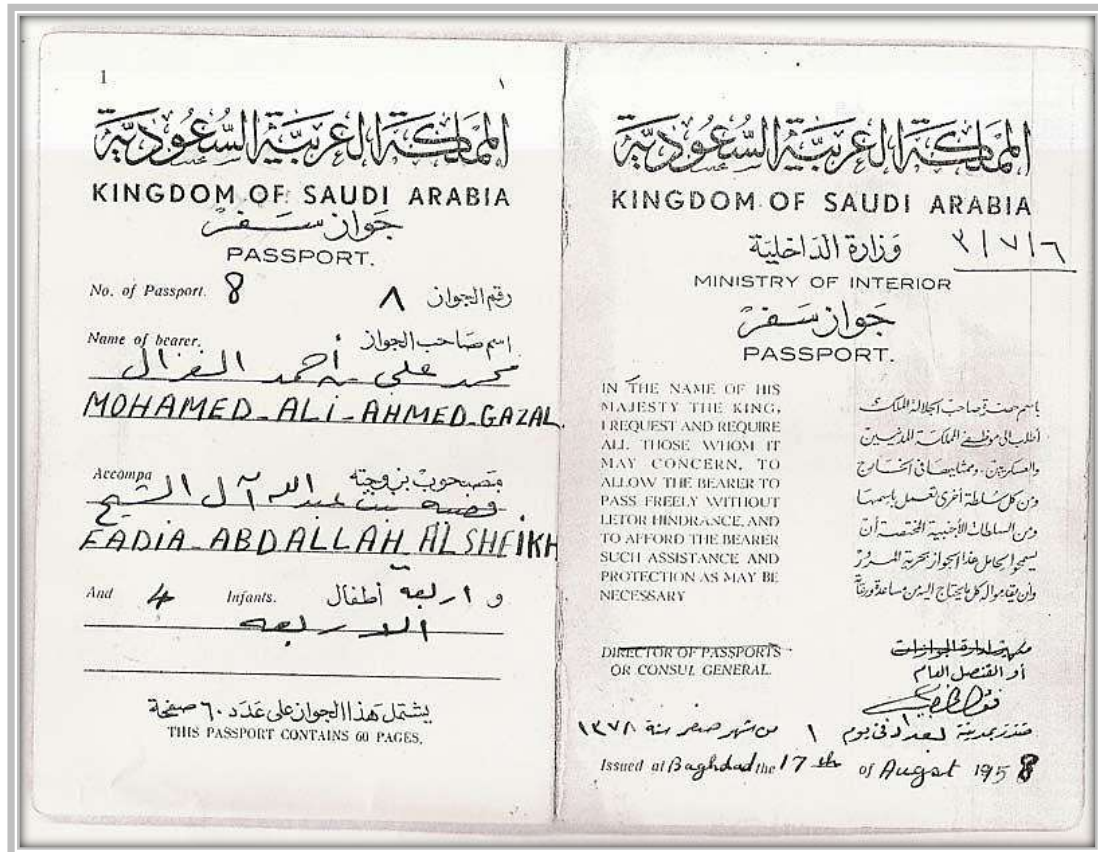 1 ١
المملكة العربية السعودية
KINGDOM OF SAUDI ARABIA
جواز سفر
PASSPORT.
No. of Passport. 8 رقم الجواز ٨
Name of bearer. اسم صاحب الجواز
محمد علي أحمد الغزال
MOHAMED-ALI-AHMED-GAZAL.
Accompa مصحوب بزوجته
بنت عبد الله آل الشيخ
EADIA-ABDALLAH ALSHEIKH
And 4 Infants. و اربعه أطفال
الاربعه
يشتمل هذا الجواز على عدد ٦٠ صفحة
THIS PASSPORT CONTAINS 60 PAGES.
المملكة العربية السعودية
KINGDOM OF SAUDI ARABIA
وزارة الداخلية ٣/٧/٦
MINISTRY OF INTERIOR
جواز سفر
PASSPORT.
IN THE NAME OF HIS
MAJESTY THE KING,
I REQUEST AND REQUIRE
ALL THOSE WHOM IT
MAY CONCERN, TO
ALLOW THE BEARER TO
PASS FREELY WITHOUT
LETOR HINDRANCE, AND
TO AFFORD THE BEARER
SUCH ASSISTANCE AND
PROTECTION AS MAY BE
NECESSARY
باسم حضرة صاحب الجلالة الملك
أطلب الى موظفي المملكة المدنيين
والعسكريين، وممثليها في الخارج
ومن كل سلطة أخرى تعمل باسمها
ومن السلطات الأجنبية المختصة أن
يسمحوا لحامل هذا الجواز بحرية المرور
وأن يقدموا له كل ما يحتاج اليه من مساعدة ورعاية
DIRECTOR OF PASSPORTS
OR CONSUL GENERAL.
مدير إدارة الجوازات
أو القنصل العام
بمدينة بغداد في يوم ١ من شهر صفر سنة ١٣٧٨
Issued at Baghdad the 17th of Augst 1958